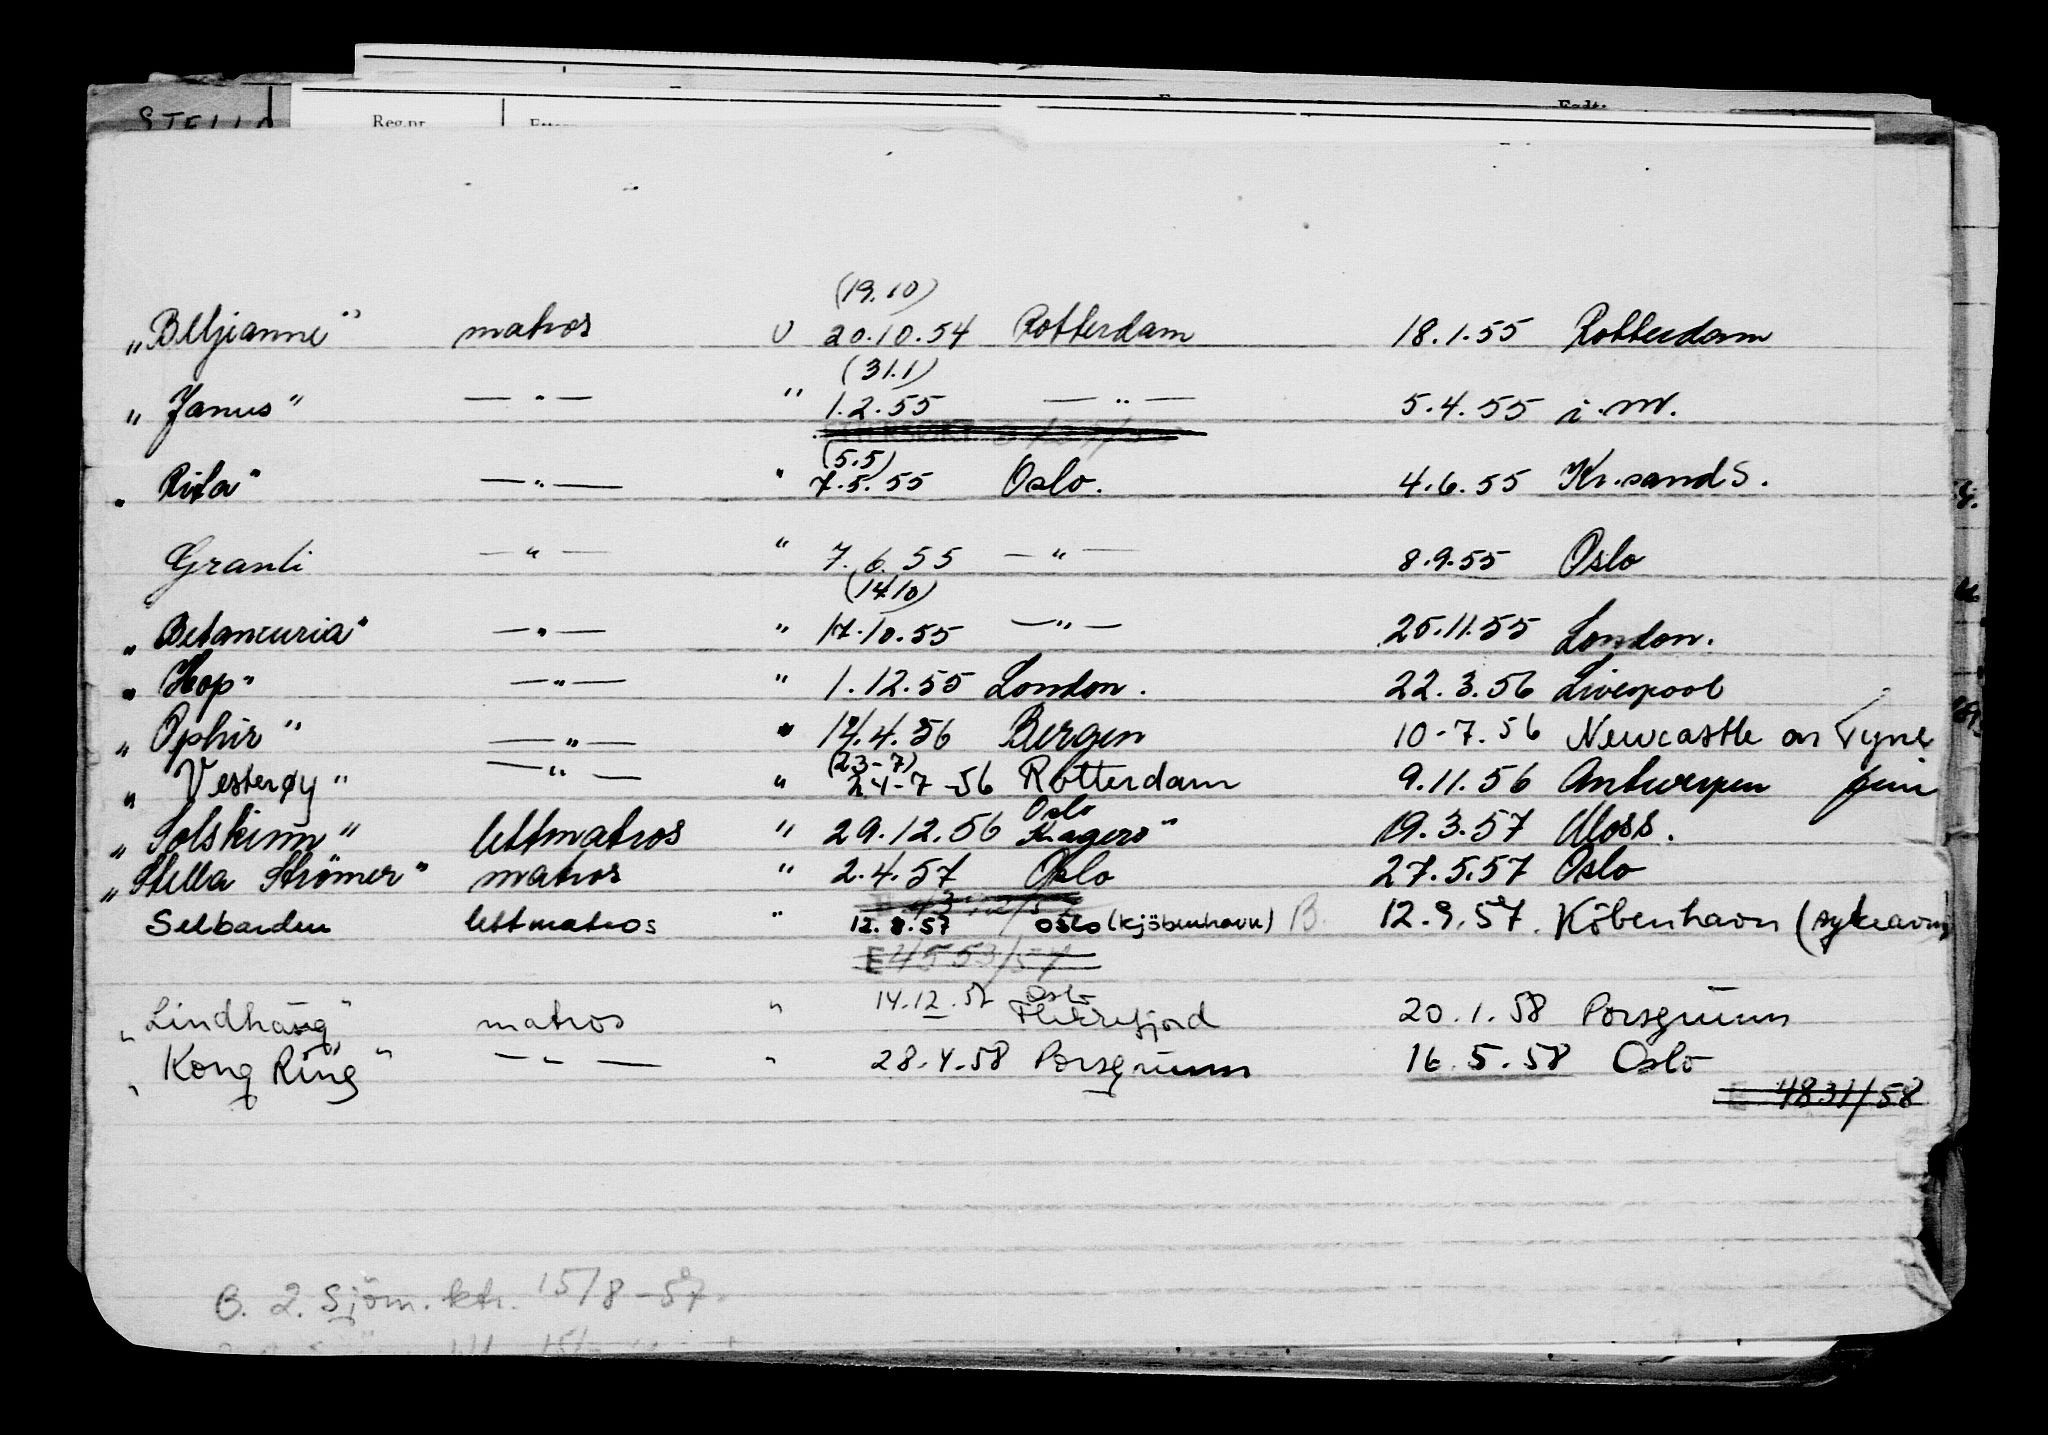 STELLA
Reg.nr. Født:
(19.10)
„Beljeanne" matros U 20.10.54 Rotterdam 18.1.55 Rotterdam
(31.1)
„Janus" — „ — " 1.2.55 — „ — 5.4.55 i. NV.
(5.5)
„Rita" — „ — " 7.5.55 Oslo. 4.6.55 Kr.sand S.
Granli — „ — " 7.6.55 — „ — 8.9.55 Oslo
(14.10)
„Betancuria" — „ — " 17.10.55 — „ — 25.11.55 London.
„Hop" — „ — " 1.12.55 London. 22.3.56 Liverpool
„Ophir" — „ — " 14.4.56 Bergen 10-7.56 Newcastle on Tyne
(23-7)
„Vesterøy" — „ — " 24-7-56 Rotterdam 9.11.56 Antwerpen
Oslo
„Solskinn" lettmatros " 29.12.56 Kragerø" 19.3.57 Moss.
„Stella Strömer" matros " 2.4.57 Oslo 27.5.57 Oslo
Selbarden lettmatros " 12.8.57 Oslo (Kjöbenhavn) B. 12.9.57. Köbenhavn (sykeavm)
E 4553/57
Oslo
„Lindhaug" matros " 14.12.57 Flekkefjord 20.1.58 Porsgrunn
„Kong Ring" — „ — " 28.4.58 Porsgrunn 16.5.58 Oslo
E 4831/58
B. 2. Sjöm. ktr. 15/8-57.